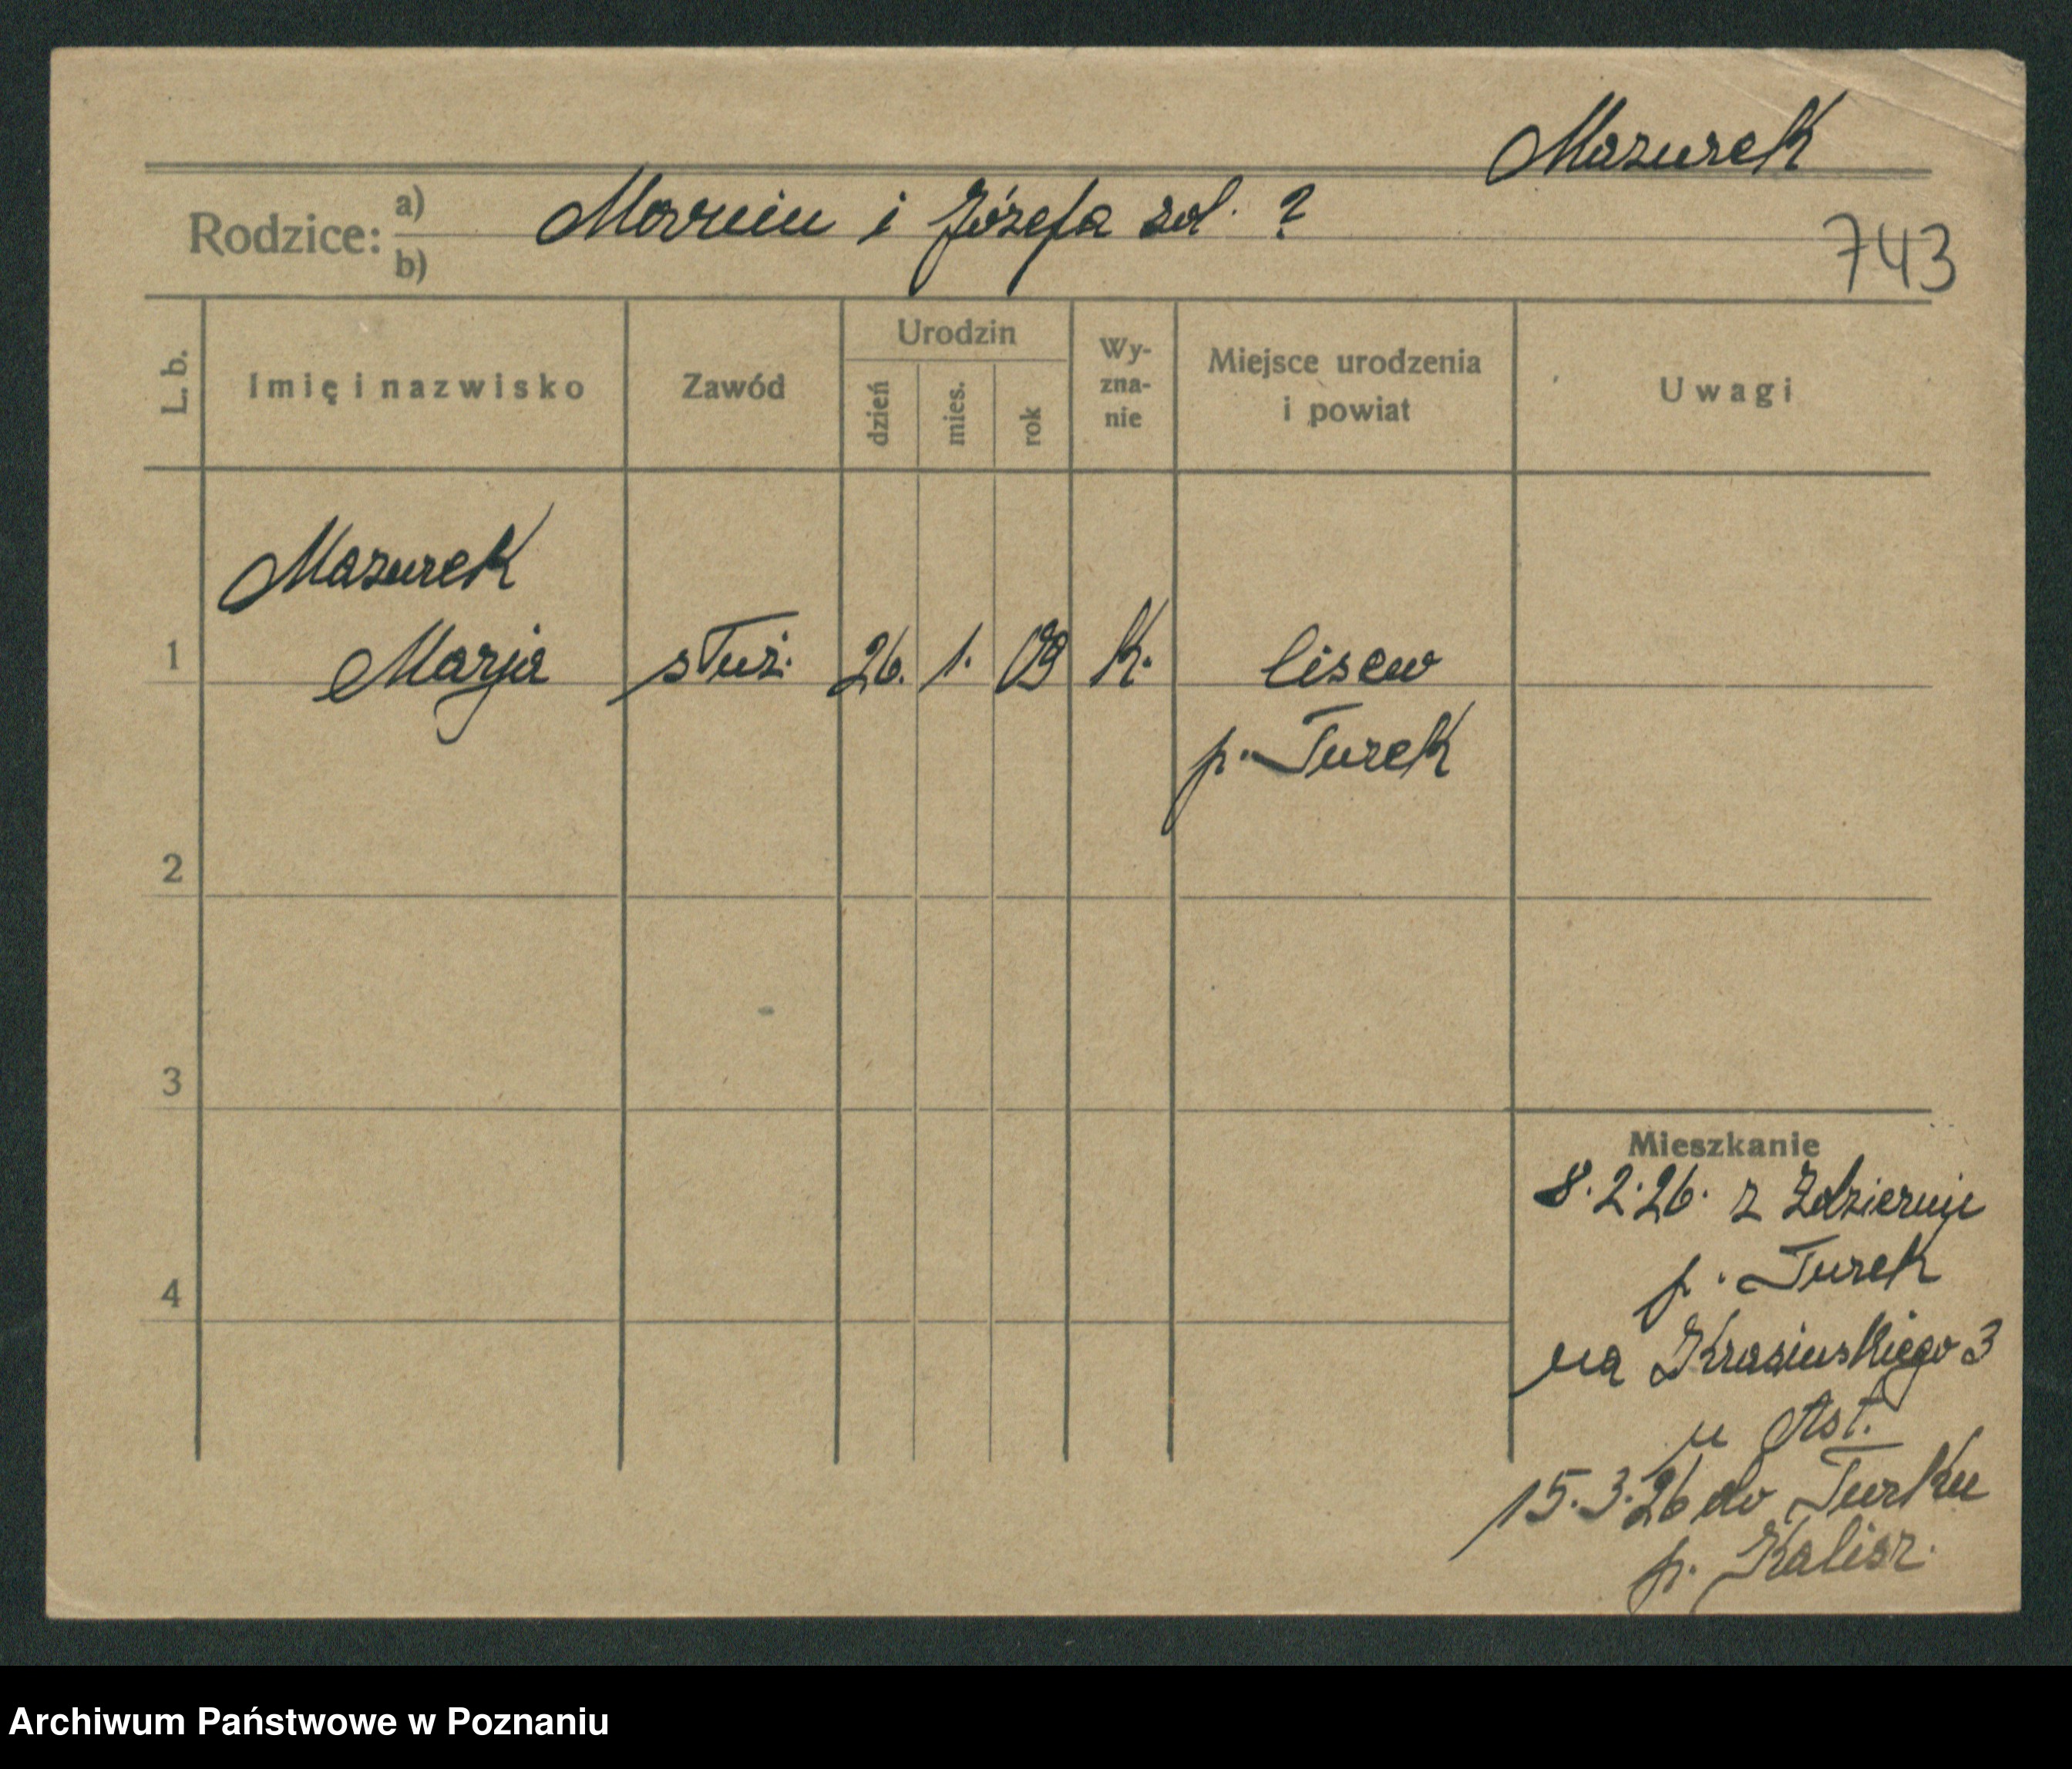 Mazurek
Rodzice: a) b) Marcin i Józefa zd. ?
743
L. b.
Imię i nazwisko
Zawód
Urodzin
dzień
mies.
rok
Wy-
zna-
nie
Miejsce urodzenia
i powiat
Uwagi
Mazurek
1 Marja służ. 26. 1. 09 K. Lisew
p. Turek
2
3
4
Mieszkanie
8.2.26. z
p. Turek
na Krasińskiego 3
u
15.3.26 do Turku
p. Kalisz.
Archiwum Państwowe w Poznaniu